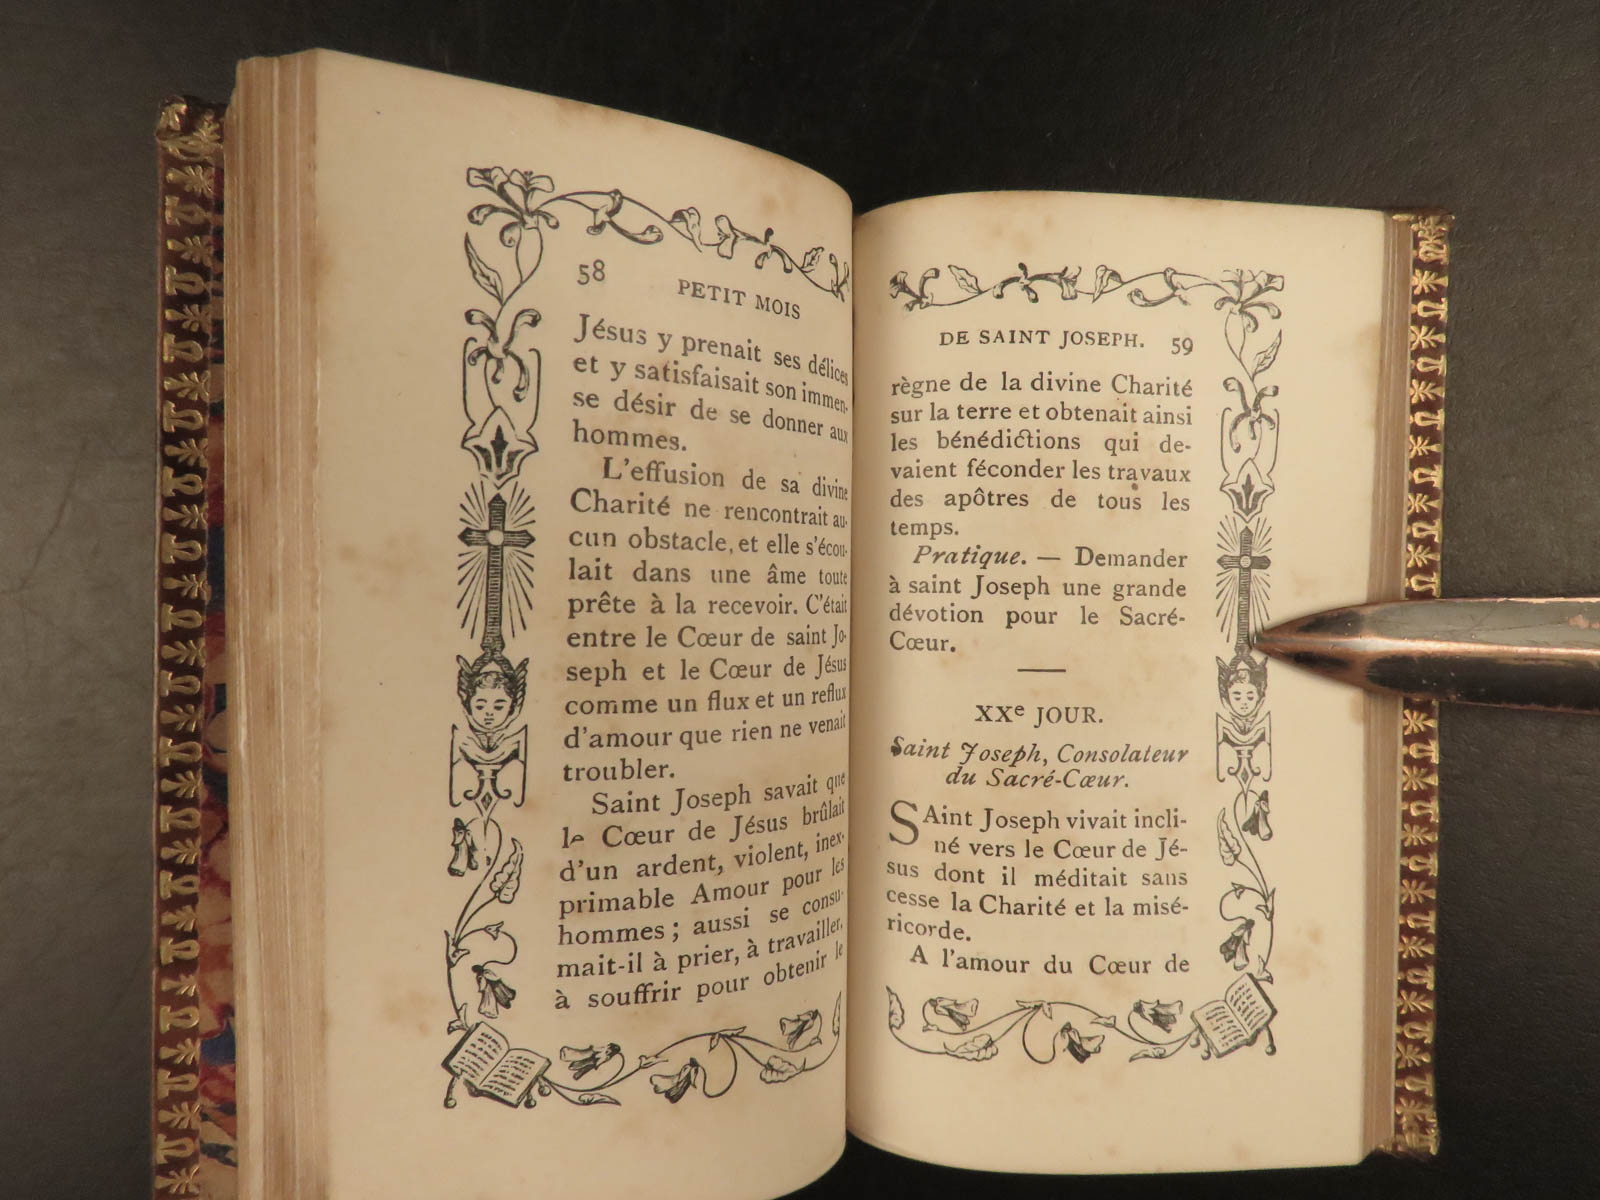 58
PETIT MOIS
Jésus y prenait ses délices
et y satisfaisait son immen-
se désir de se donner aux
hommes.
L'effusion de sa divine
Charité ne rencontrait au-
cun obstacle, et elle s'écou-
lait dans une âme toute
prête à la recevoir. C'était
entre le Cœur de saint Jo-
seph et le Cœur de Jésus
comme un flux et un reflux
d'amour que rien ne venait
troubler.
Saint Joseph savait que
le Cœur de Jésus brûlait
d'un ardent, violent, inex-
primable Amour pour les
hommes ; aussi se consu-
mait-il à prier, à travailler,
à souffrir pour obtenir le
DE SAINT JOSEPH. 59
règne de la divine Charité
sur la terre et obtenait ainsi
les bénédictions qui de-
vaient féconder les travaux
des apôtres de tous les
temps.
Pratique. — Demander
à saint Joseph une grande
dévotion pour le Sacré-
Cœur.
XXe JOUR.
Saint Joseph, Consolateur
du Sacré-Cœur.
SAint Joseph vivait incli-
né vers le Cœur de Jé-
sus dont il méditait sans
cesse la Charité et la misé-
ricorde.
A l'amour du Cœur de